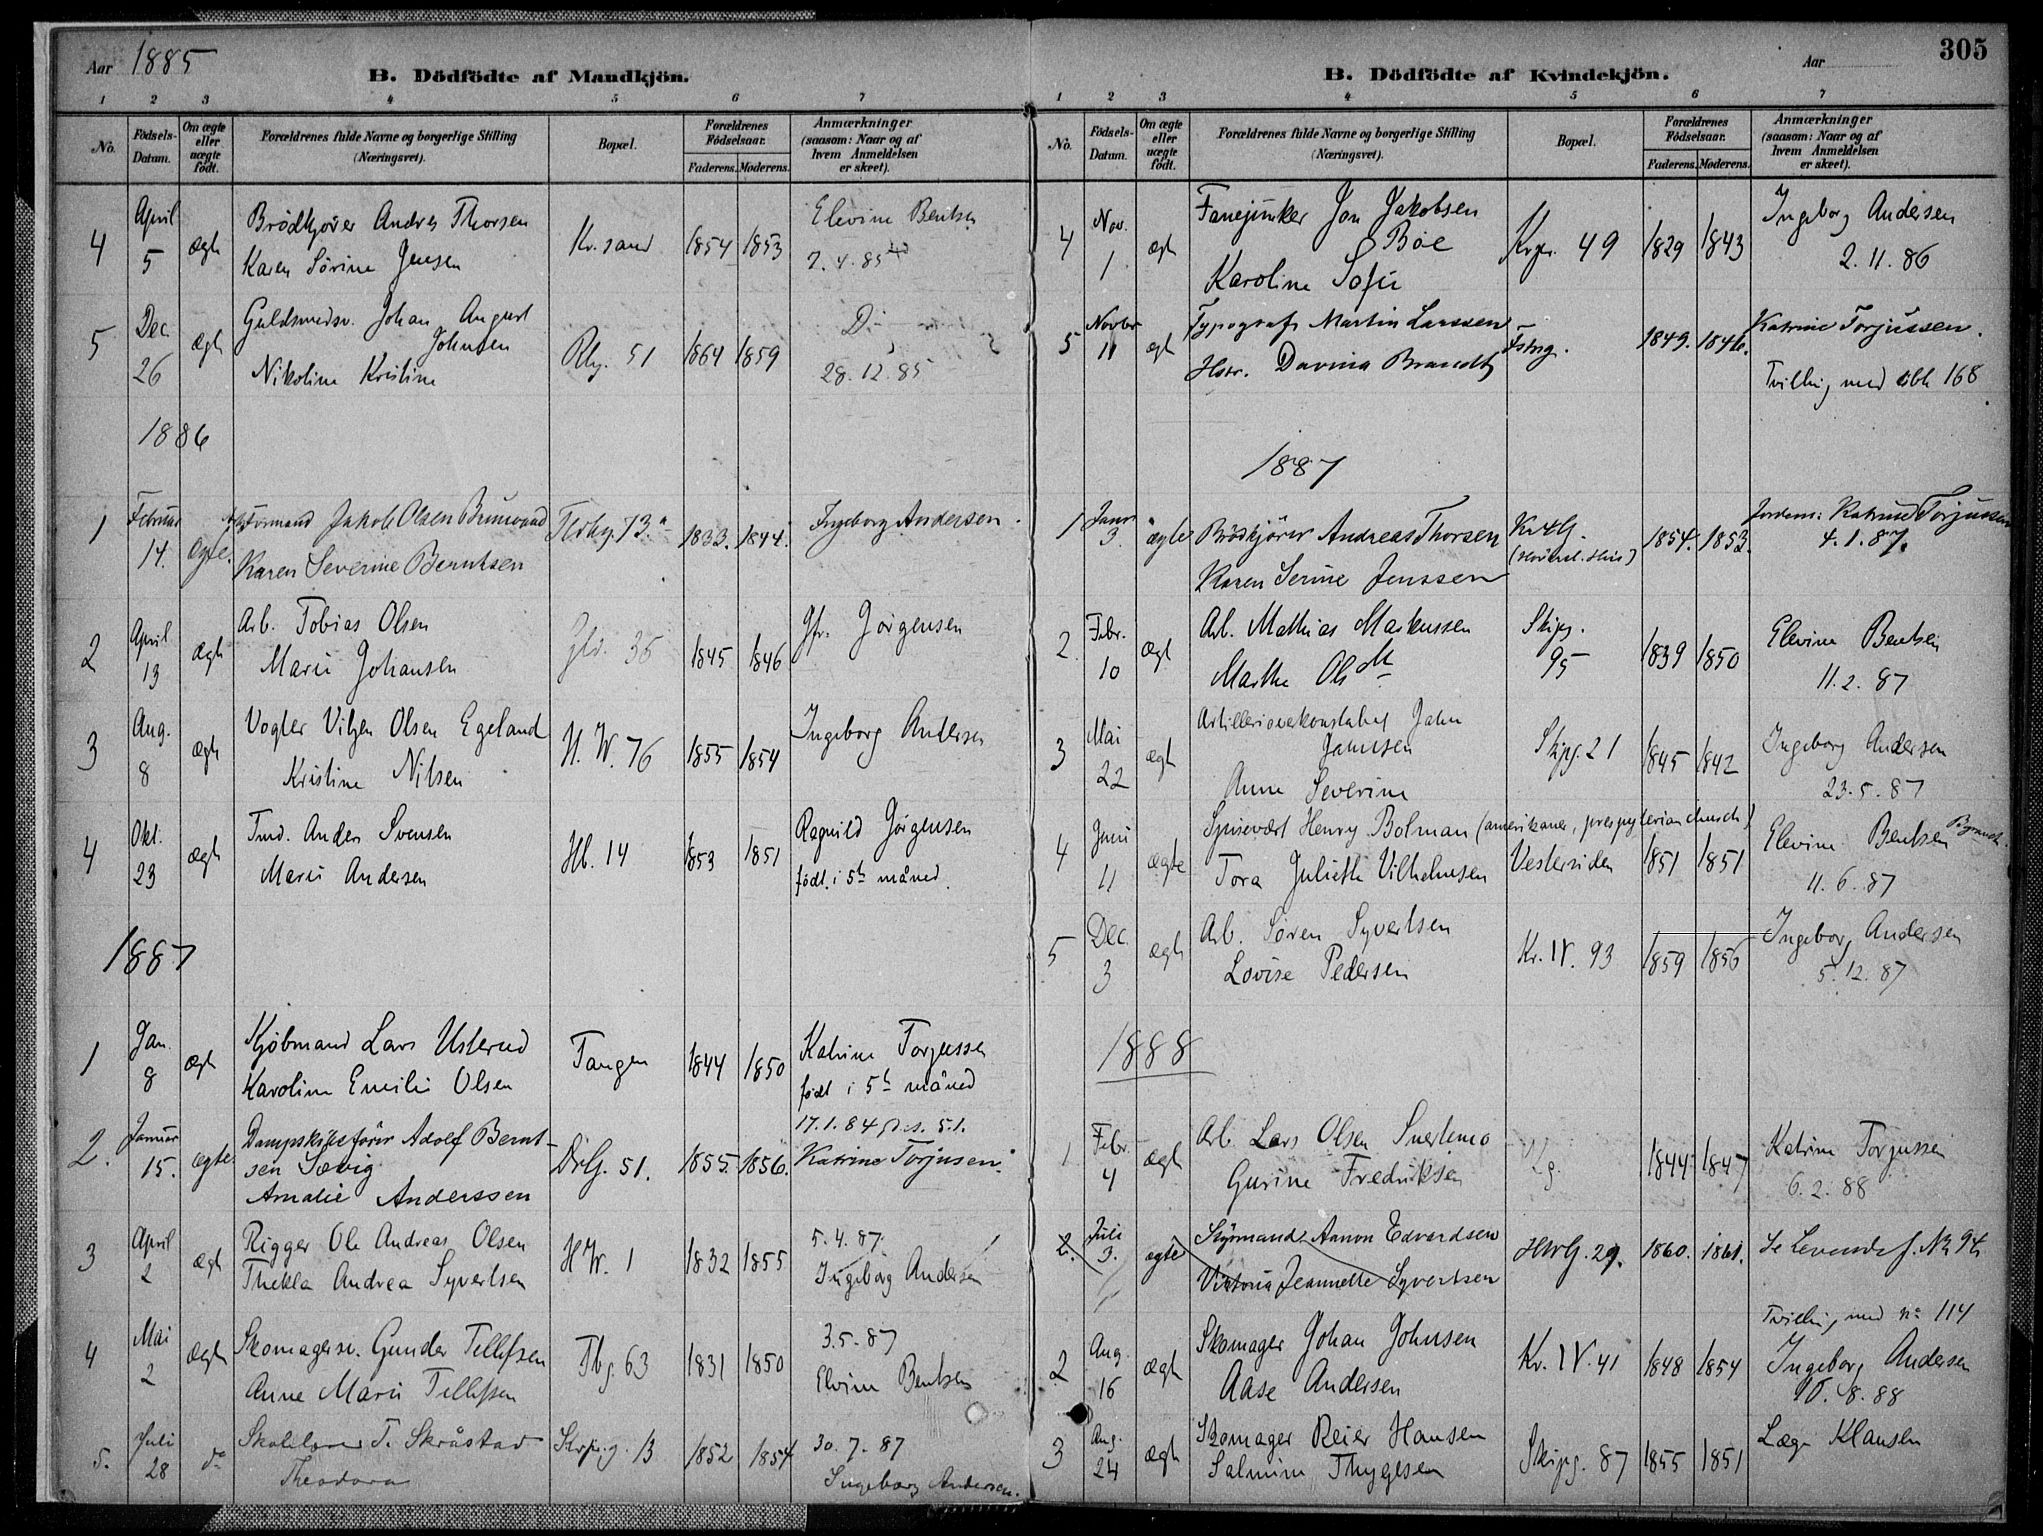 Aar 1885
B. Dödfödte af Mandkjön.
1 2 3 4 5 6 7
No. Födsels-Datum. Om ægte eller uægte födt. Forældrenes fulde Navne og borgerlige Stilling (Næringsvei). Bopæl. Forældrenes Födselsaar. Faderens. Moderens. Anmærkninger (saasom: Naar og af hvem Anmeldelsen er skeet).
4 April 5 ægte Brödkjører Andres Thorsen Kr.sand 1854 1853 Elevine Bentsen
Karen Sörine Jensen 7.4.85
5 Dec. 26 ægte Guldsmedsv. Johan August Johnsen 51 1864 1859 Do
Nikoline Kristine 28.12.85
1886
1 Februar 14. ægte. Formand Jakob Olsen 73. 1833. 1844. Ingeborg Andersen.
Karen Severine Berntsen
2 April 13 ægte Arb. Tobias Olsen 36 1845 1846 Jfr. Jørgensen
Marie Johansen
3 Aug. 8 ægte Vogter Olsen Egeland H.W. 76 1855 1854 Ingeborg Andersen
Kristine Nilsen
4 Okt. 23 ægte Tmd. Anders Svensen Hb. 14 1853 1851 Ragnild Jörgensen
Marie Andersen født i 5te måned.
1887
1 Jan. 8 ægte Kjöbmand Lars Usterud Tangen 1844 1850 Katrine Torjussen
Karoline Emilie Olsen født i 5te måned
17.1.84
2. Januar 15. ægte Dampskibsfører Adolf Bernt- DrG. 51. 1855. 1856. Katrine Torjusen.
sen Sævig
Amalie Anderssen
3 April 2 ægte Rigger Ole Andreas Olsen HW. 1 1832 1855 5.4.87
Thekla Andrea Syvertsen Ingeborg Andersen
4 Mai 2 ægte Skomagersv. Gunder Tellefsen Tbg. 63 1831 1850 3.5.87
Anne Marie Tellefsen Elvine Bentsen
5. Juli 28 do Skolelærer T. Skråstad 13 1852 1854 30.7.87
Theodora Ingeborg Andersen.
B. Dödfödte af Kvindekjön.
Aar
305
1 2 3 4 5 6 7
No. Födsels-Datum. Om ægte eller uægte födt. Forældrenes fulde Navne og borgerlige Stilling (Næringsvei). Bopæl. Forældrenes Födselsaar. Faderens. Moderens. Anmærkninger (saasom: Naar og af hvem Anmeldelsen er skeet).
4 Nov. 1 ægt Fanejunker Jon Jakobsen 49 1829 1843 Ingeborg Andersen
Bøe 2.11.86
Karoline Sofie
5 Novbr 11 ægt Typograf Martin Larssen Fstng. 1849. 1846. Katrine Torjussen.
Hstr. Davina Brandt Tvilling med 168
1887
1 Janr 3. ægte Brödkjörer Andreas Thorsen 1854. 1853. Jordem: Katrine Torjussen
Karen Serine Jenssen 4.1.87.
2. Febr. 10 ægt Arb. Mathias Markussen Skipg. 95 1839 1850 Elevine Bentsen
Marthe Olsdtr 11.2.87
3 Mai 22 ægt Artillerivekonstabel John Skipg. 21 1845 1842 Ingeborg Andersen
Jamsen
Anne Severine 23.5.87
4 Juni 11 ægte Spisevært Henry Bolman (amerikaner, prespyterian church) Elevine Bentsen
Tora Juliette Vilhelmsen Vestersiden 1851 1851 11.6.87
5 Dec. 3 ægte Arb. Søren Syvertsen Kr. IV. 93 1859 1856 Ingeborg Andersen
Lovise Pedersen 5.12.87
1888
1 Febr. 4 ægt Arb. Lars Olsen Snertemo 1844 1847 Katrine Torjussen
Gurine Fredriksen 6.2.88
2. Juli 3. ægte Styrmand Aanon Edvardsen 29. 1860. 1861. Se Levende f. No 94
Viktoria Jeannette Syvertsen
Tvilling med no 114
2 Aug. 16 ægt Skomager Johan Johnsen Kr. IV. 41 1848 1854 Ingeborg Andersen
Aase Andersen 8.88
3 Aug. 24 ægt Skomager Reier Hansen Skipg. 87 1855 1851 Læge Klausen
Salmine Thygesen